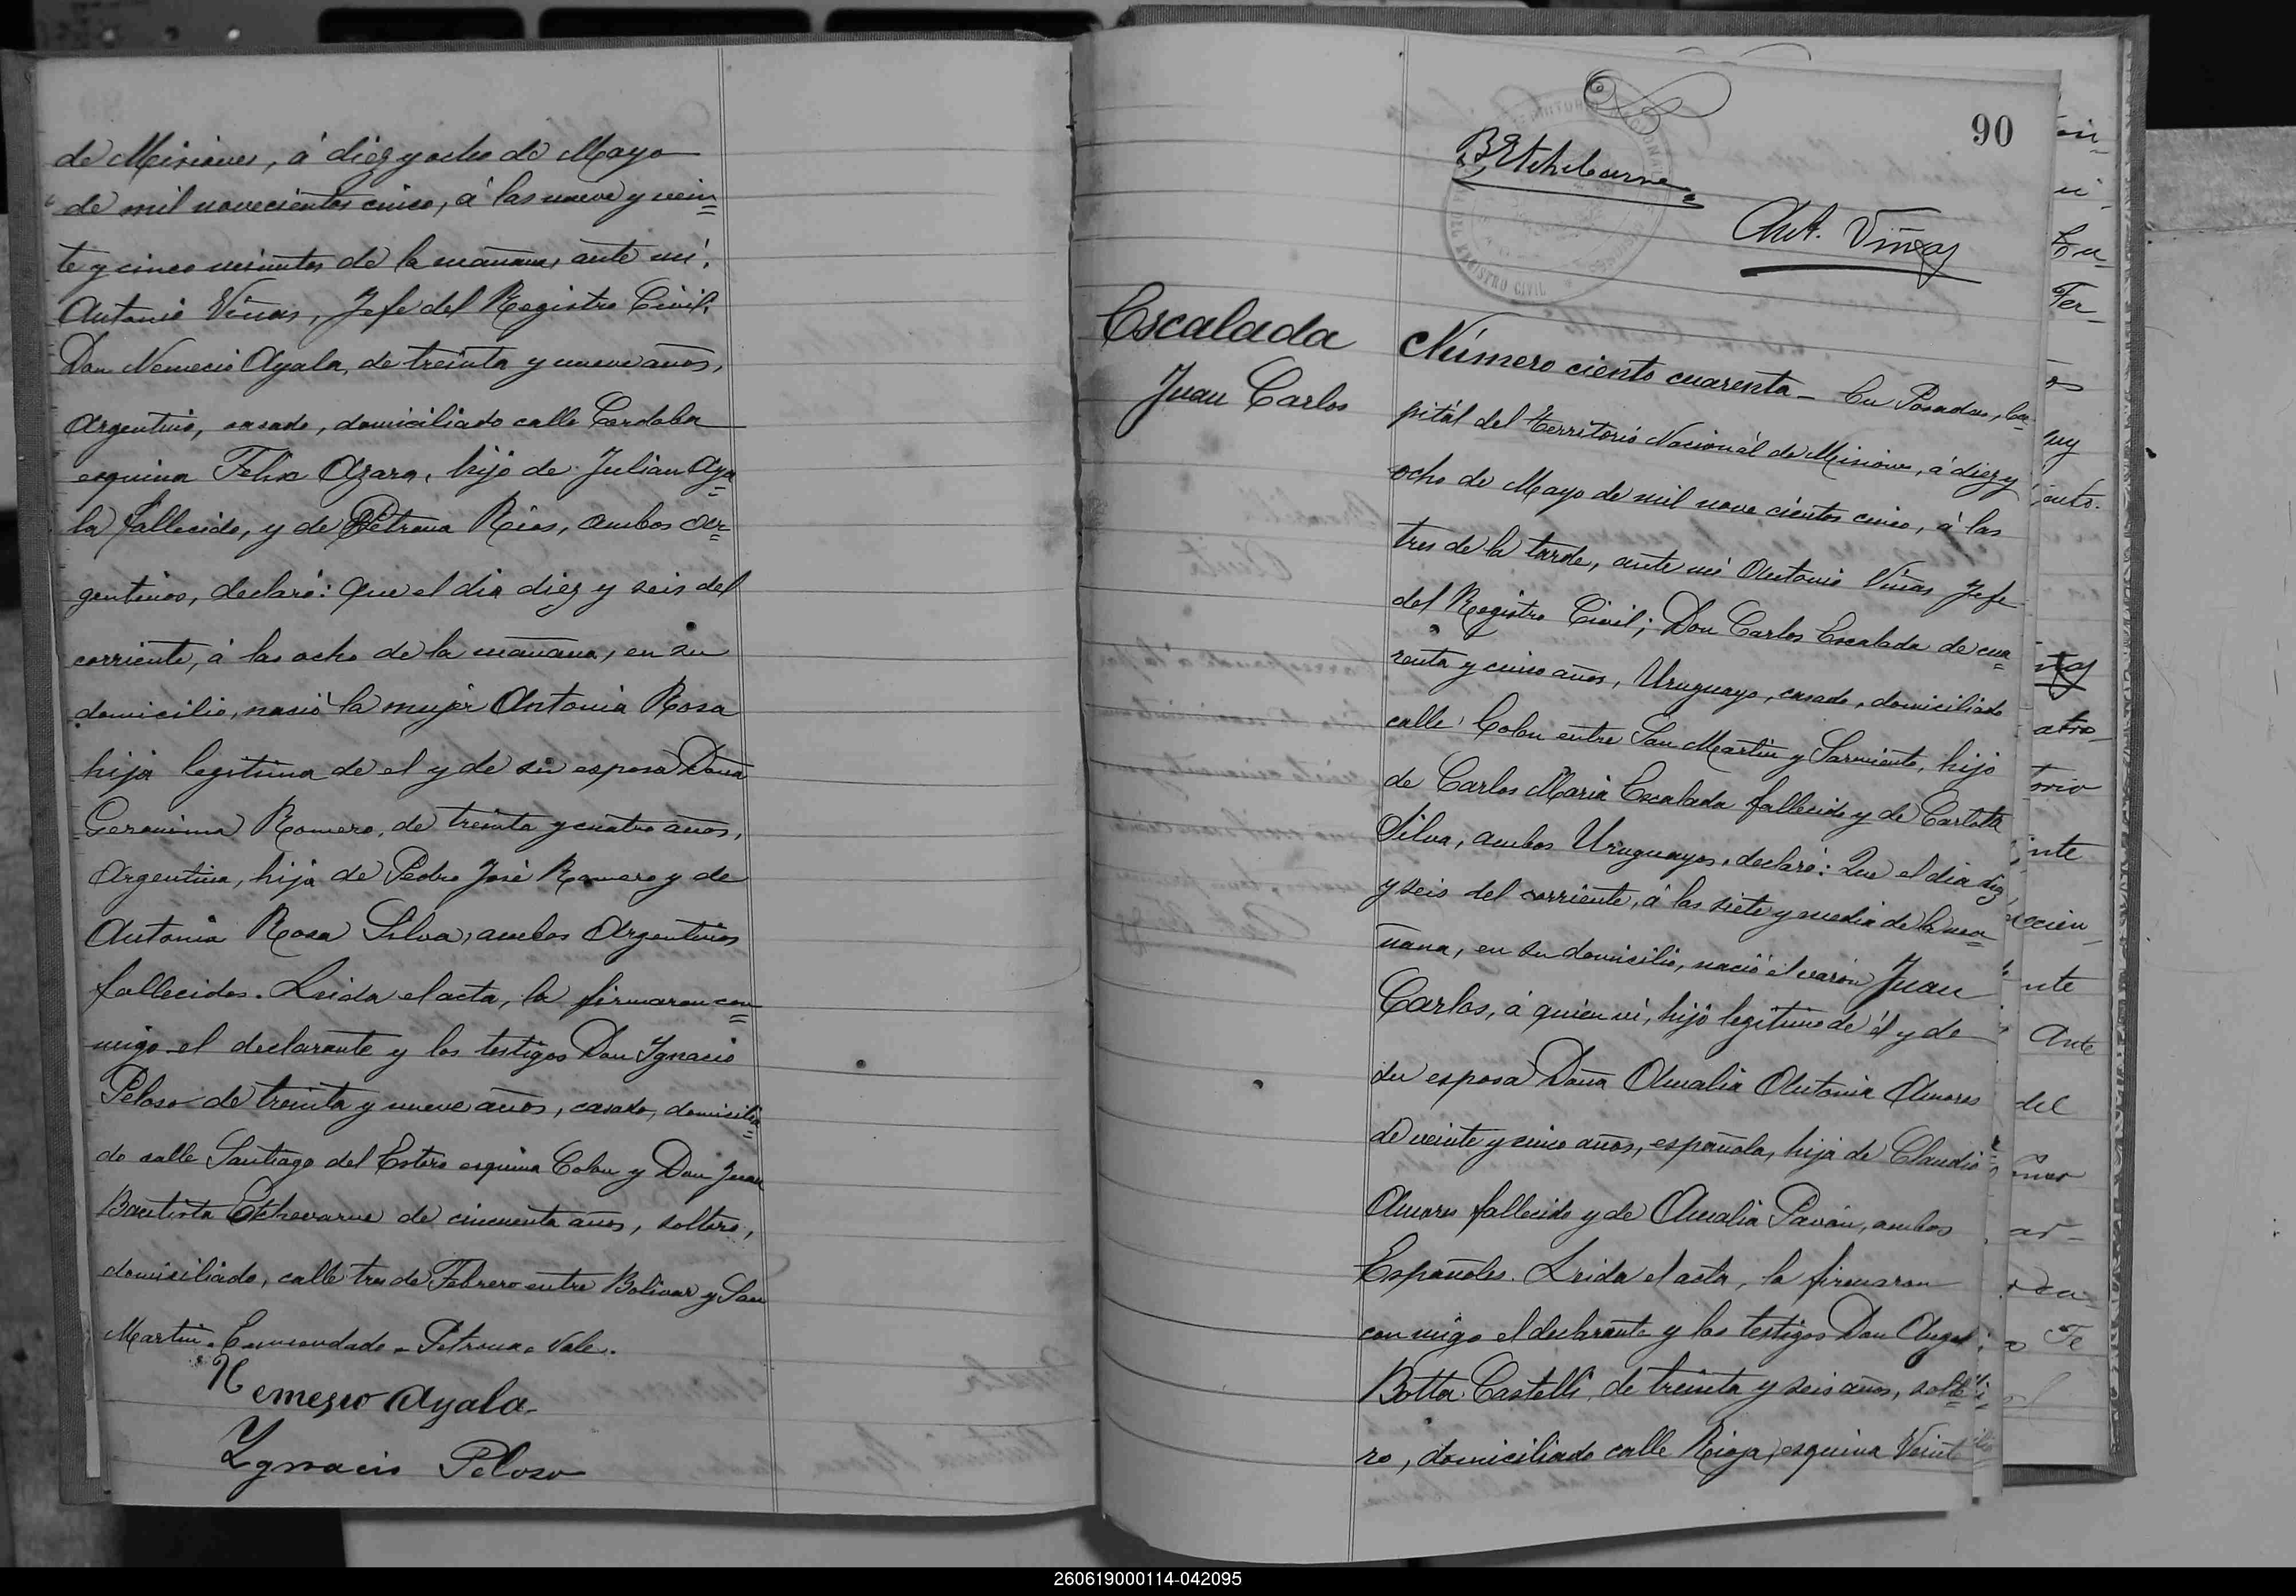 de Misiones, á diez y ocho de Mayo
de mil novecientos cinco, á las nueve y vein=
te y cinco minutos de la mañana, ante mí,
Antonio Viñas, Jefe del Registro Civil,
Don Nemecio Ayala, de treinta y nueve años,
Argentino, casado, domiciliado calle Cordoba
esquina Felix Azara, hijo de Julian Aya=
la fallecido, y de Petrona Rios, ambos Ar=
gentinos, declaró: Que el dia diez y seis del
corriente, á las ocho de la mañana, en su
domicilio, nació la mujer Antonia Rosa
hija legitima de el y de su esposa Doña
Geronima Romero, de treinta y cuatro años,
Argentina, hija de Pedro José Romero y de
Antonia Rosa Silva, ambos Argentinos
fallecidos. Leida el acta, la firmaron con=
migo el declarante y los testigos Don Ygnacio
Peloso de treinta y nueve años, casado, domicilia=
do calle Santiago del Estero esquina Colon y Don Juan
Bautista Etchevarne de cincuenta años, soltero,
domiciliado, calle tres de Febrero entre Bolivar y San
Martin. Enmendado - Petrona - Vale.
Nemesio Ayala
Ygnacio Peloso
90
B. Etchebarne
Ant. Viñas
REGISTRO CIVIL
Escalada
Juan Carlos
Número ciento cuarenta - En Posadas, Ca=
pitál del Territorio Nacionál de Misiones, á diez y
ocho de Mayo de mil nove cientos cinco, á las
tres de la tarde, ante mí Antonio Viñas Jefe
del Registro Civil; Don Carlos Escalada de cua=
renta y cinco años, Uruguayo, casado, domiciliado
calle Colon entre San Martin y Sarmiento, hijo
de Carlos Maria Escalada fallecido y de Carlota
Silva, ambos Uruguayos, declaró: Que el dia diez
y seis del corriente, á las siete y media de la ma=
ñana, en su domicilio, nació el varón Juan
Carlos, á quien ví, hijo legitimo de él y de
su esposa Doña Amalia Antonia Amores
de veinte y cinco años, española, hija de Claudio
Amores fallecido y de Amalia Pavón, ambos
Españoles. Leida el acta, la firmaron
con migo el declarante y los testigos Don Angel
Botta Castelli, de treinta y seis años, solte=
ro, domiciliado calle Rioja, esquina Veinte
260619000114-042095